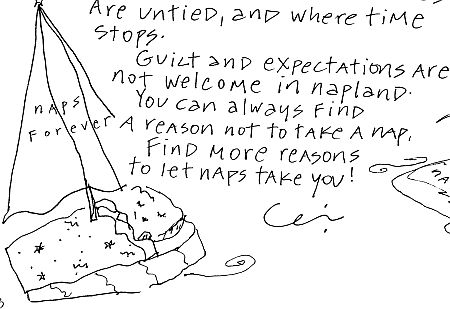 Are untied, and where time
stops.
Guilt and expectations are
not welcome in napland.
You can always find
A reason not to take a nap,
Find more reasons
to let naps take you!
naps
Forever